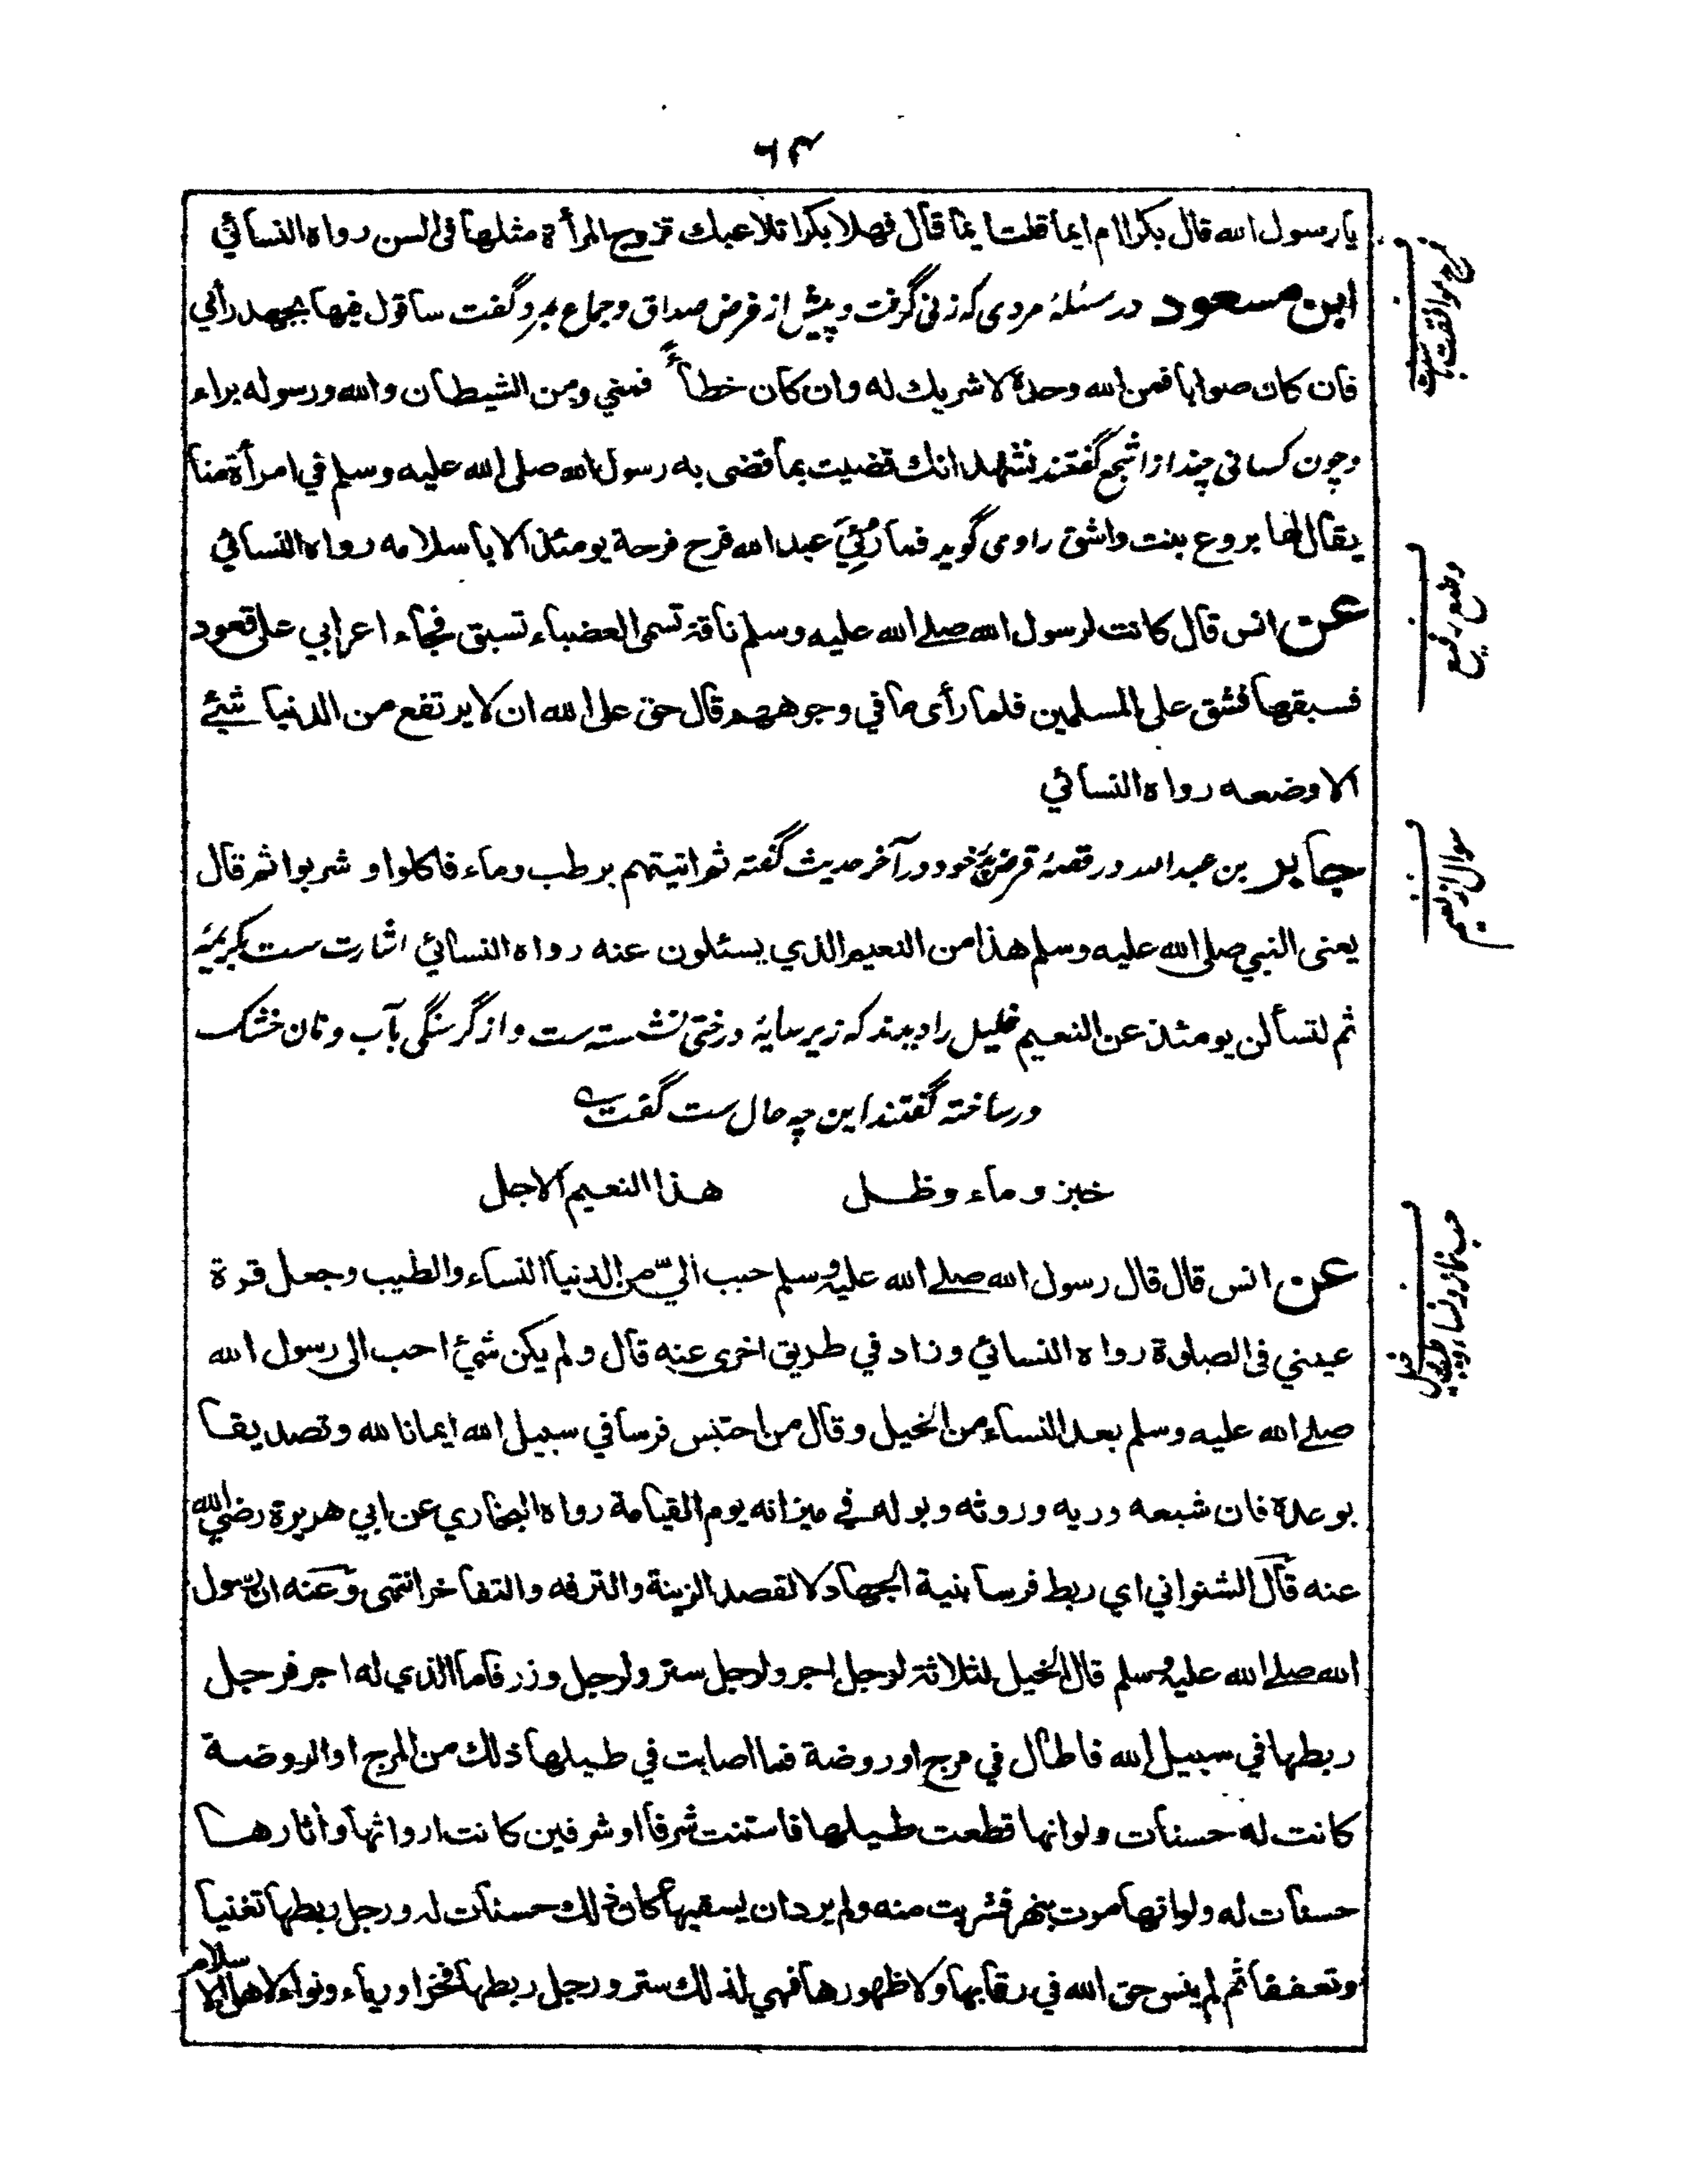 ۶۴
يا رسول الله قال بكرا ام ايما قلت ايما قال فهلا بكرا تلاعبك تزوج المرأة مثلها فى السن رواه النسائي
ابن مسعود در مسئلهٔ مردى كه زنى گرفت و پيش از فرض صداق و جماع بمرد گفت سأقول فيها بجهد رأيي
فان كان صوابا فمن الله وحده لا شريك له وان كان خطأ فمني ومن الشيطان والله ورسوله براء
وچون كسانى چند از اشجع گفتند نشهد انك قضيت بما قضى به رسول الله صلى الله عليه وسلم في امرأة منا
يقال لها بروع بنت واشق راوى گويد فما رُئِيَ عبد الله فرح فرحة يومئذ الا باسلامه رواه النسائي
عن انس قال كانت لرسول الله صلے الله عليه وسلم ناقة تسمى العضباء لا تسبق فجاء اعرابي على قعود
فسبقها فشق على المسلمين فلما رأى ما في وجوههم قال حق على الله ان لا يرتفع من الدنيا شئے
الا وضعه رواه النسائي
جابر بن عبد الله در قصهٔ قرض خود در آخر حديث گفته ثم اتيتهم برطب وماء فاكلوا و شربوا ثم قال
يعنى النبي صلى الله عليه وسلم هذا من النعيم الذي يسئلون عنه رواه النسائي اشارت ست بكريمهٔ
ثم لتسألن يومئذ عن النعيم خليل را ديدند كه زير سايهٔ درختى نشسته ست و از گرسنگى بآب و نان خشك
در ساخته گفتند اين چه حال ست گفت ے
خبز وماء وظل هذا النعيم الاجل
عن انس قال قال رسول الله صلے الله عليه وسلم حبب اليّ من الدنيا النساء والطيب وجعل قرة
عيني فى الصلوة رواه النسائي وزاد في طريق اخرى عنه قال ولم يكن شئ احب الى رسول الله
صلے الله عليه وسلم بعد النساء من الخيل وقال من احتبس فرسا في سبيل الله ايمانا لله وتصديقا
بوعده فان شبعه وريه وروثه وبوله في ميزانه يوم القيامة رواه البخاري عن ابي هريرة رضي الله
عنه قال الشنواني اي ربط فرسا بنية الجهاد لا لقصد الزينة والترفه والتفاخر انتهى وعنه ان رسول
الله صلے الله عليه وسلم قال الخيل لثلاثة لرجل اجر ولرجل ستر ولرجل وزر فاما الذي له اجر فرجل
ربطها في سبيل الله فاطال في مرج او روضة فما اصابت في طيلها ذلك من المرج او الروضة
كانت له حسنات ولو انها قطعت طيلها فاستنت شرفا او شرفين كانت ارواثها وأثارها
حسنات له ولو انها مرت بنهر فشربت منه ولم يرد ان يسقيها كان ذلك حسنات له ورجل ربطها تغنيا
وتعففا ثم لم ينس حق الله في رقابها ولا ظهورها فهي لذلك ستر ورجل ربطها فخرا ورياء ونواء لاهل الاسلام
وضع رفيع
سوال از نعيم
حب نماز ونساء وطيب